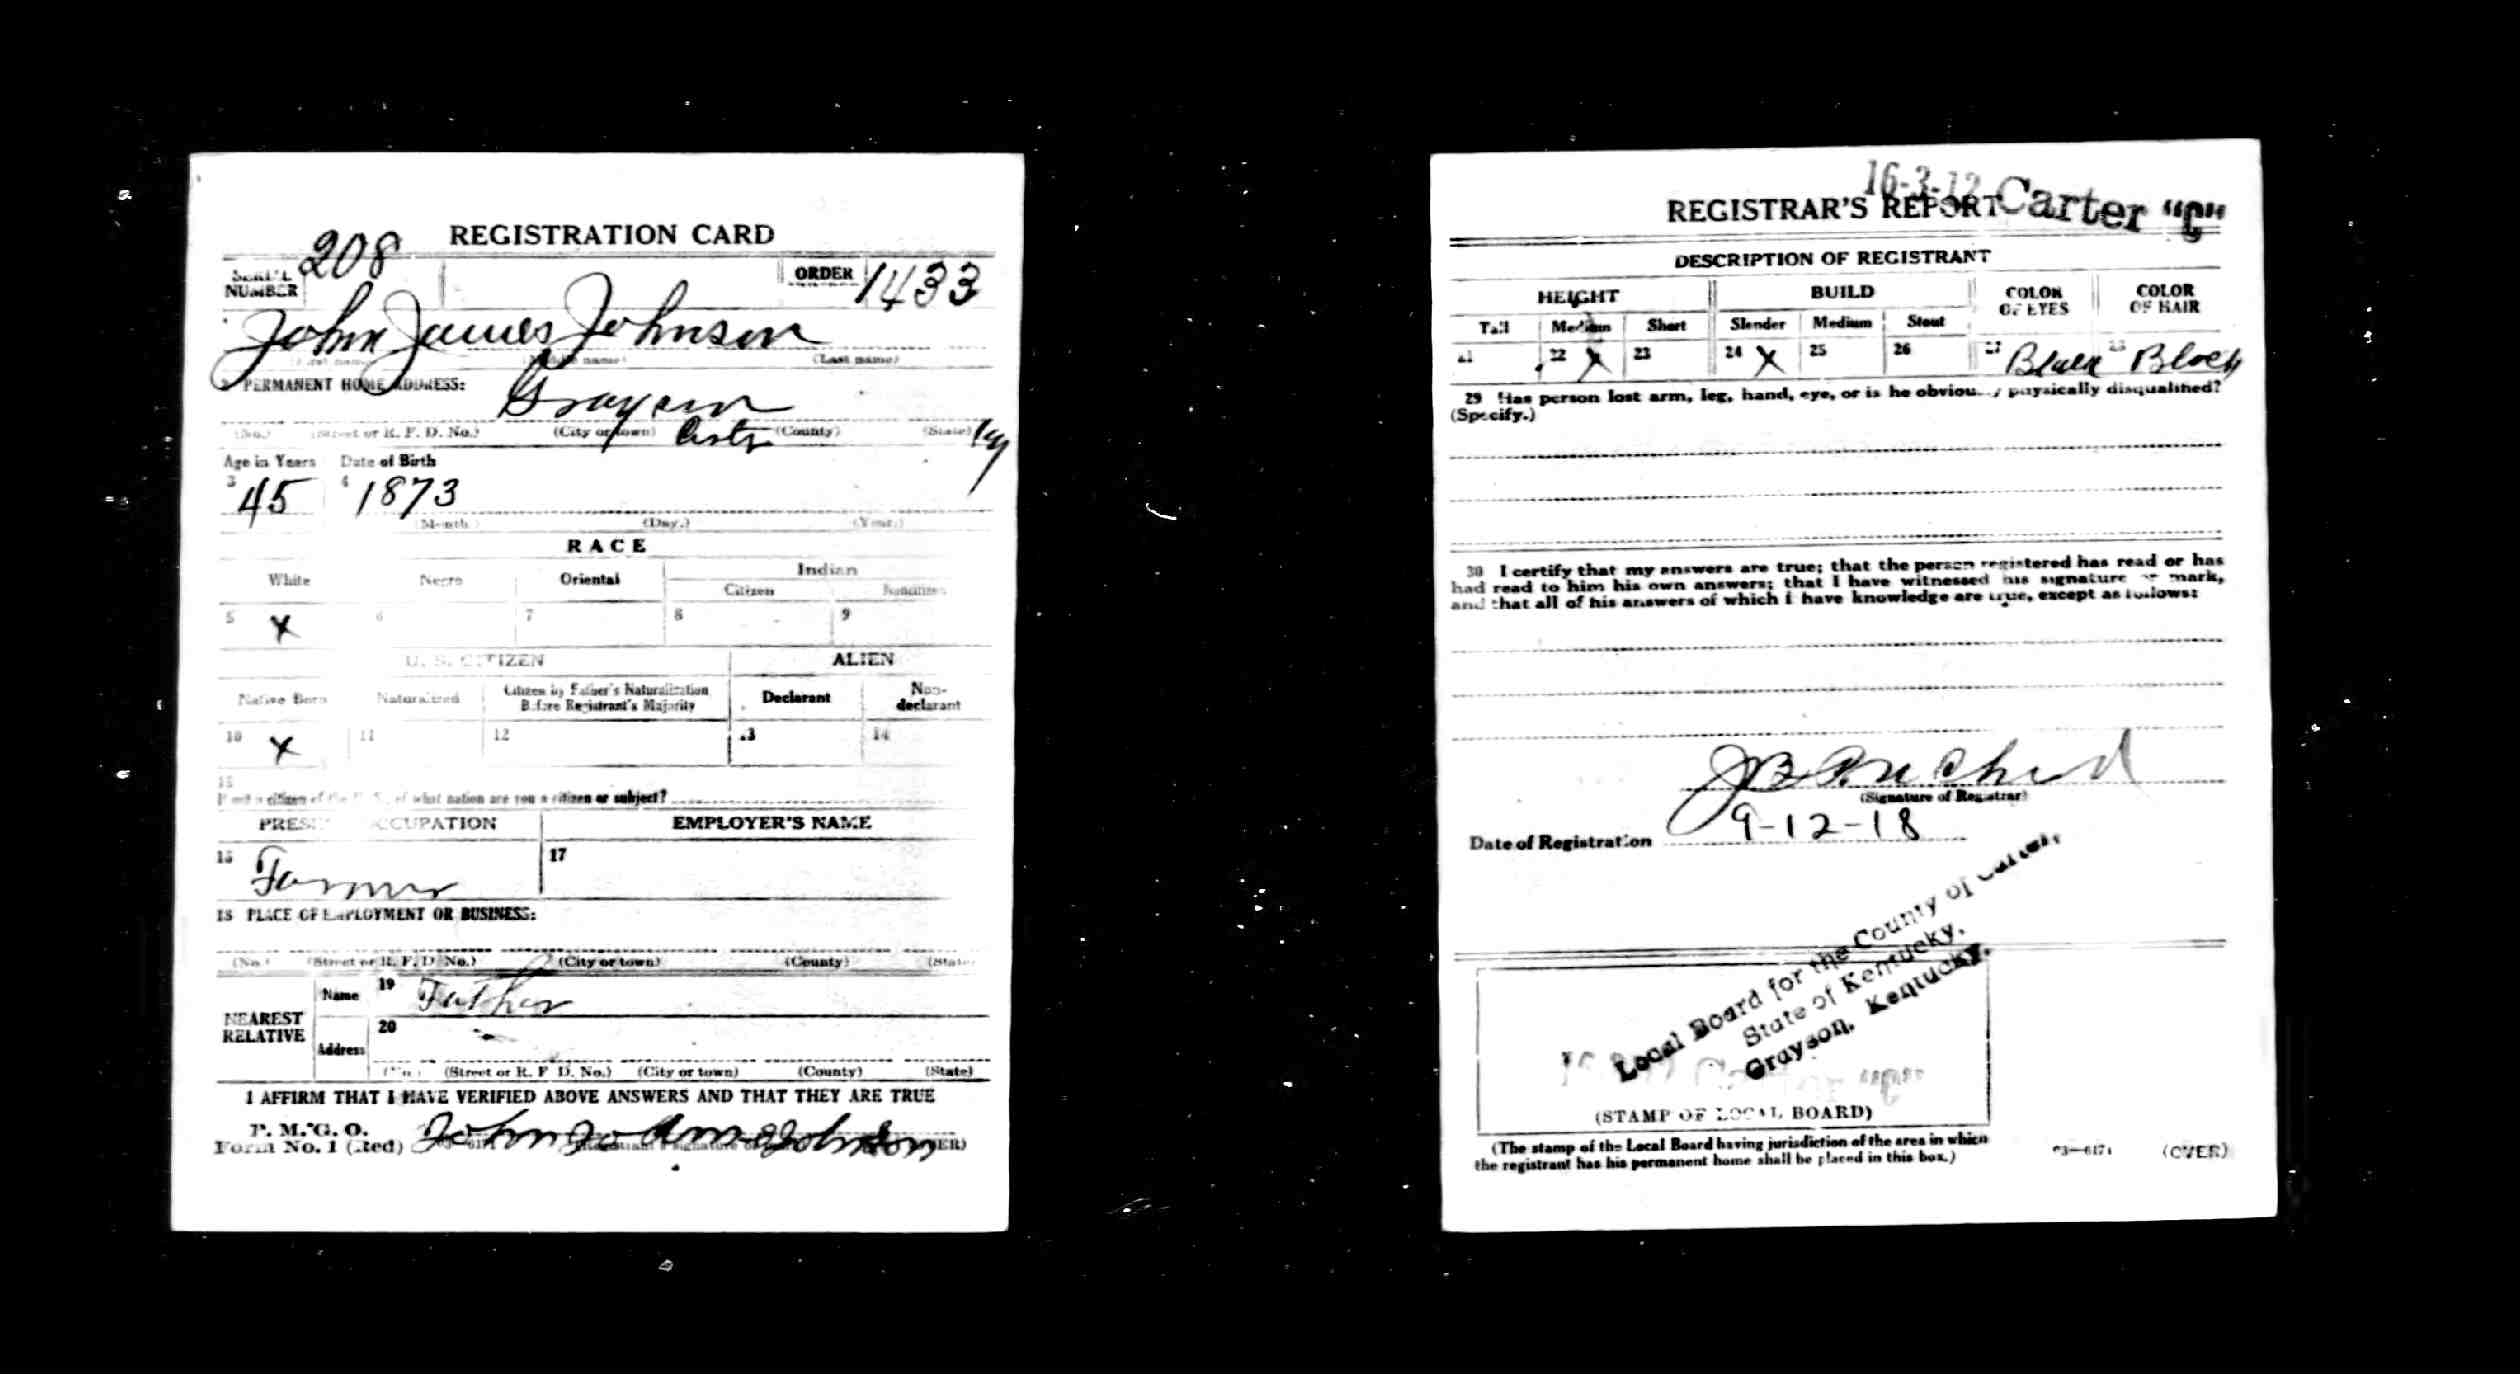 REGISTRATION CARD
SERIAL NUMBER 208 ORDER 1433
John James Johnson
(First name) (Middle name) (Last name)
2 PERMANENT HOME ADDRESS:
Grayson
(No.) (Street or R. F. D. No.) (City or town) Carter (County) (State) Ky
Age in Years Date of Birth
3 45 4 1873
(Month.) (Day.) (Year.)
RACE
White Negro Oriental Indian
Citizen Noncitizen
5 X 6 7 8 9
U. S. CITIZEN ALIEN
Native Born Naturalized Citizen by Father's Naturalization Before Registrant's Majority Declarant Non-declarant
10 X 11 12 13 14
15
If not a citizen of the U. S., of what nation are you a citizen or subject?
PRESENT OCCUPATION EMPLOYER'S NAME
16 Farmer 17
18 PLACE OF EMPLOYMENT OR BUSINESS:
(No.) (Street or R. F. D. No.) (City or town) (County) (State)
NEAREST RELATIVE Name 19 Father
Address 20
(No.) (Street or R. F. D. No.) (City or town) (County) (State)
I AFFIRM THAT I HAVE VERIFIED ABOVE ANSWERS AND THAT THEY ARE TRUE
P. M. G. O.
Form No. 1 (Red) John Johnson (OVER)
16-3-12 Carter "C"
REGISTRAR'S REPORT
DESCRIPTION OF REGISTRANT
HEIGHT BUILD COLOR OF EYES COLOR OF HAIR
Tall Medium Short Slender Medium Stout
21 22 X 23 24 X 25 26 27 28 Black
29 Has person lost arm, leg, hand, eye, or is he obviously physically disqualified?
(Specify.)
30 I certify that my answers are true; that the person registered has read or has
had read to him his own answers; that I have witnessed his signature or mark,
and that all of his answers of which I have knowledge are true, except as follows:
(Signature of Registrar)
Date of Registration 9-12-18
Local Board for the County of Carter,
State of Kentucky,
Grayson, Kentucky.
(STAMP OF LOCAL BOARD)
(The stamp of the Local Board having jurisdiction of the area in which
the registrant has his permanent home shall be placed in this box.)
03—6171 (OVER)